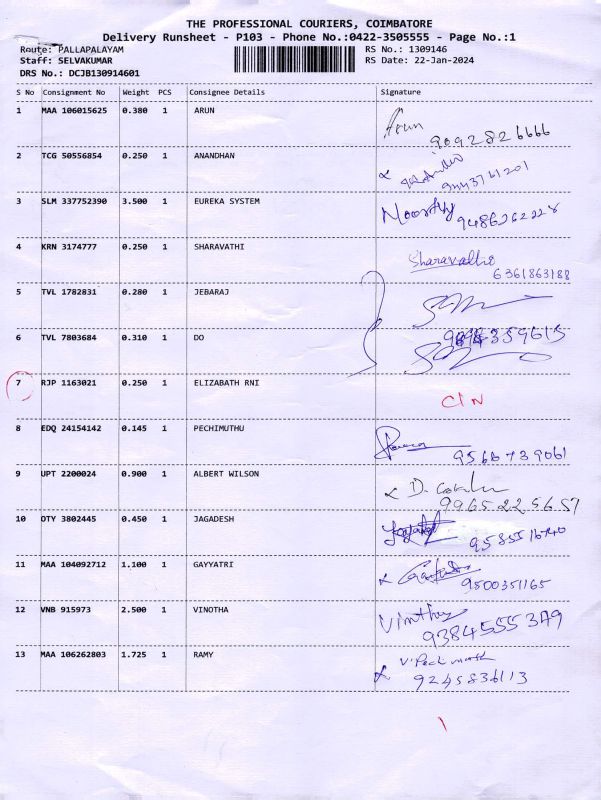 THE PROFESSIONAL COURIERS, COIMBATORE
Delivery Runsheet - P103 - Phone No.:0422-3505555 - Page No.:1
Route: PALLAPALAYAM RS No.: 1309146
Staff: SELVAKUMAR RS Date: 22-Jan-2024
DRS No.: DCJB130914601
S No Consignment No Weight PCS Consignee Details Signature
1 MAA 106015625 0.380 1 ARUN Arun
9092826666
2 TCG 50556854 0.250 1 ANANDHAN
9443761201
3 SLM 337752390 3.500 1 EUREKA SYSTEM Moorthy
9486262228
4 KRN 3174777 0.250 1 SHARAVATHI Sharavathi
6361863188
5 TVL 1782831 0.280 1 JEBARAJ
6 TVL 7803684 0.310 1 DO
7 RJP 1163021 0.250 1 ELIZABATH RNI C/N
8 EDQ 24154142 0.145 1 PECHIMUTHU
9566739061
9 UPT 2200024 0.900 1 ALBERT WILSON
9965225657
10 OTY 3802445 0.450 1 JAGADESH
9585516740
11 MAA 104092712 1.100 1 GAYYATRI
9500351165
12 VNB 915973 2.500 1 VINOTHA Vintha
9384555379
13 MAA 106262803 1.725 1 RAMY
9245836113